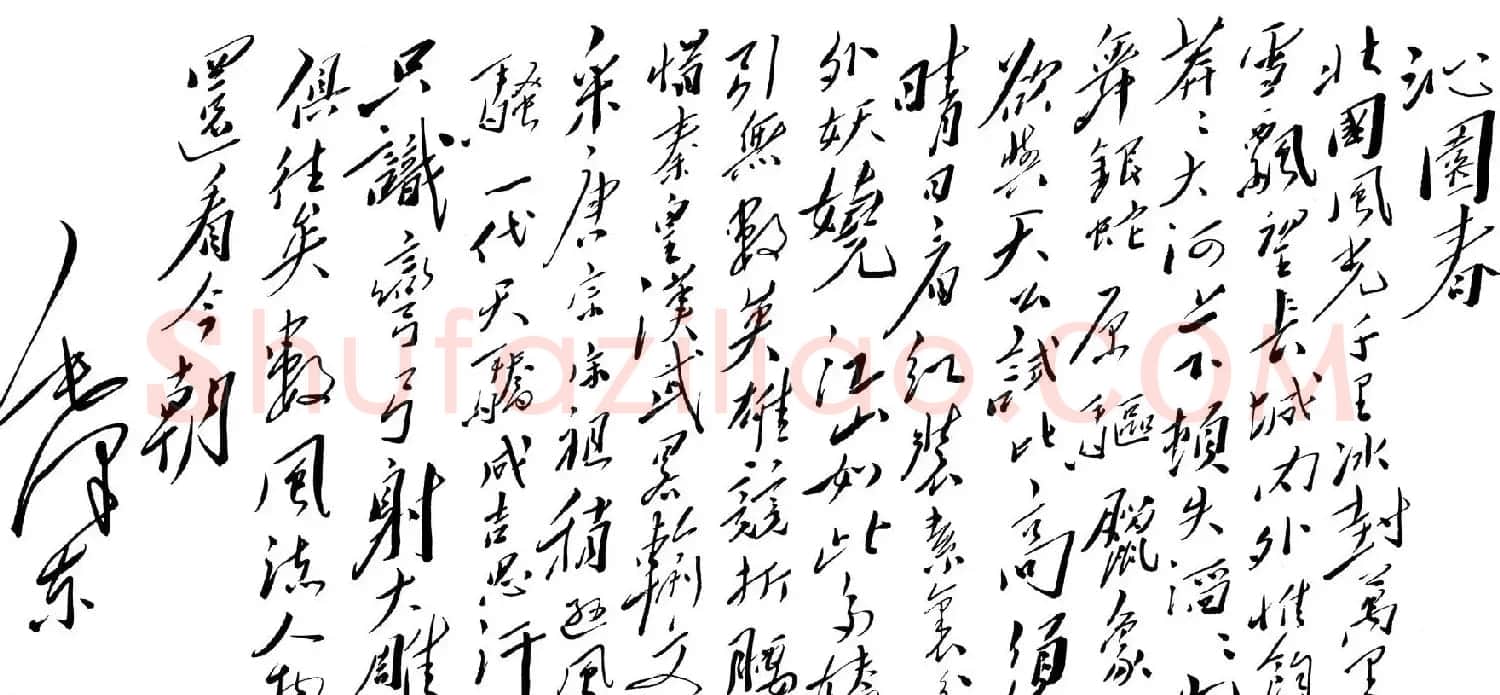 沁園春
北國風光千里冰封萬里
雪飄望長城内外惟餘
莽〻大河上下頓失滔〻
舞銀蛇原驅臘象
欲與天公試比高須
晴日看紅裝素裹分
外妖嬈江山如此多嬌
引無數英雄競折腰
惜秦皇漢武畧輸文
采唐宗宋祖稍遜風
騷一代天驕成吉思汗
只識彎弓射大雕
俱往矣數風流人物
還看今朝
毛澤東
Shufaziliao.COM